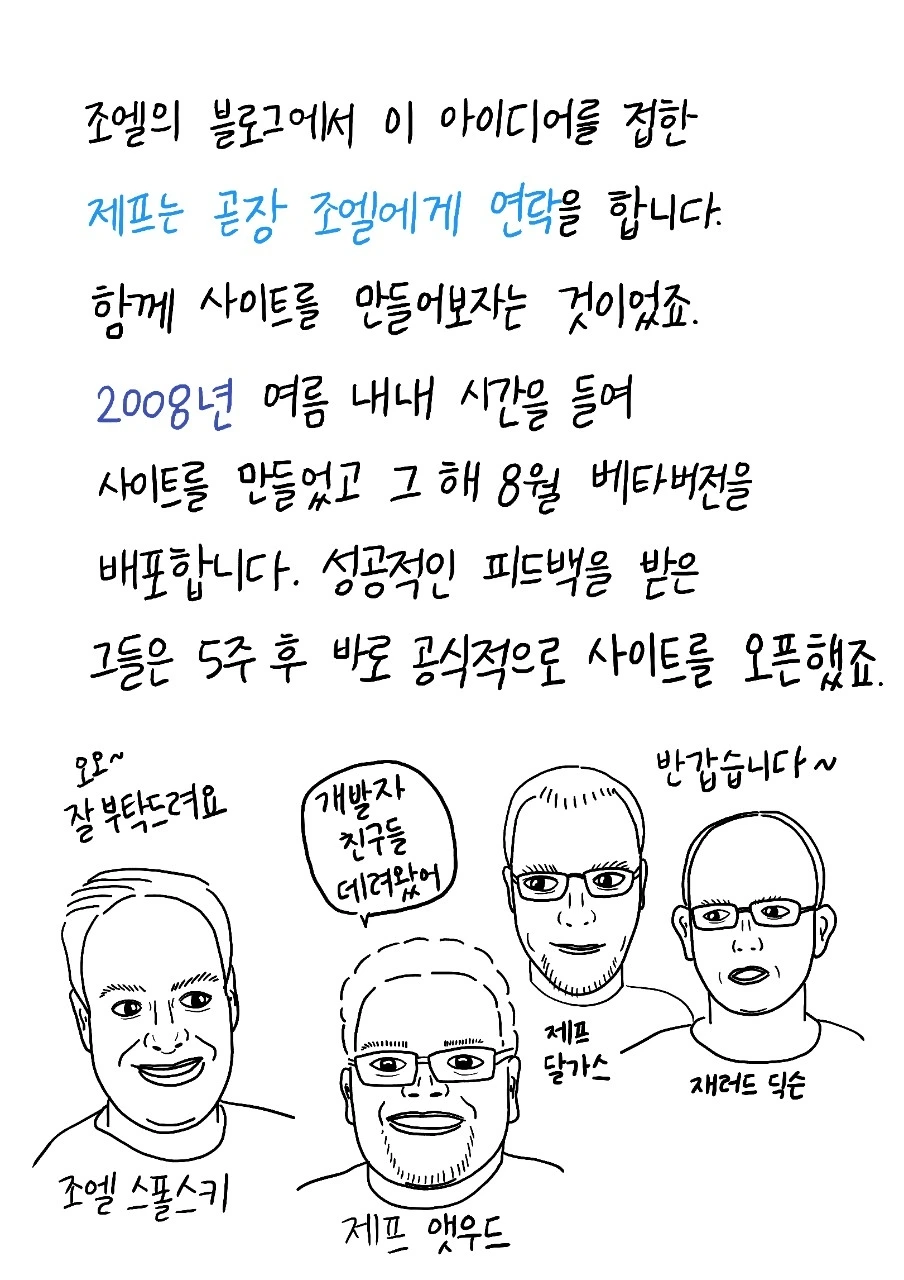 조엘의 블로그에서 이 아이디어를 접한
제프는 곧장 조엘에게 연락을 합니다.
함께 사이트를 만들어보자는 것이었죠.
2008년 여름 내내 시간을 들여
사이트를 만들었고 그 해 8월 베타버전을
배포합니다. 성공적인 피드백을 받은
그들은 5주 후 바로 공식적으로 사이트를 오픈했죠.
오오~
잘 부탁드려요
개발자
친구들
데려왔어
반갑습니다~
조엘 스폴스키
제프 앳우드
제프
달가스
재러드 딕슨